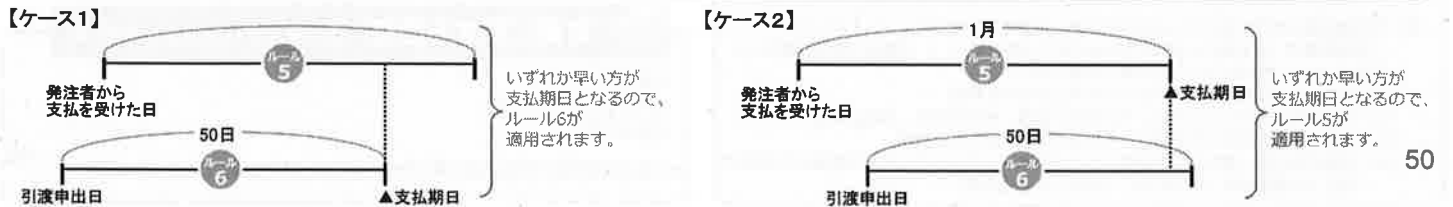 【ケース1】
ルール
5
発注者から
支払を受けた日
50日
ルール
6
引渡申出日
▲支払期日
いずれか早い方が
支払期日となるので、
ルール6が
適用されます。
【ケース2】
1月
ルール
5
発注者から
支払を受けた日
▲支払期日
50日
ルール
6
引渡申出日
いずれか早い方が
支払期日となるので、
ルール5が
適用されます。
50